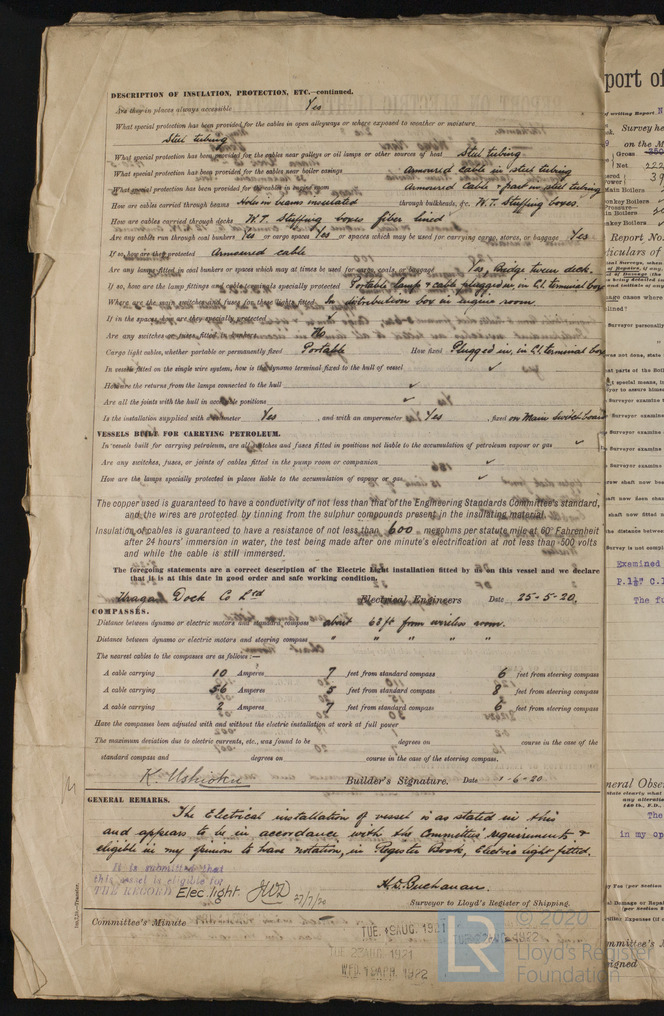 DESCRIPTION OF INSULATION, PROTECTION, ETC.—continued.
Are they in places always accessible Yes
What special protection has been provided for the cables in open alleyways or where exposed to weather or moisture
Steel tubing
What special protection has been provided for the cables near galleys or oil lamps or other sources of heat Steel tubing
What special protection has been provided for the cables near boiler casings Armoured cable in steel tubing
What special protection has been provided for the cables in engine room Armoured cable & part in steel tubing
How are cables carried through beams Holes in beams insulated through bulkheads, &c. W.T. Stuffing boxes.
How are cables carried through decks W.T. Stuffing boxes fiber lined
Are any cables run through coal bunkers Yes or cargo spaces Yes or spaces which may be used for carrying cargo, stores, or baggage Yes
If so, how are they protected Armoured cable
Are any lamps fitted in coal bunkers or spaces which may at times be used for cargo, coals, or baggage Yes, Bridge tween deck.
If so, how are the lamp fittings and cable terminals specially protected Portable lamps & cable plugged in, in C.I. terminal box
Where are the main switches and fuses for these lights fitted In distribution box in engine room.
If in the spaces, how are they specially protected
Are any switches or fuses fitted in bunkers No
Cargo light cables, whether portable or permanently fixed Portable How fixed Plugged in, in C.I. terminal box
In vessels fitted on the single wire system, how is the dynamo terminal fixed to the hull of vessel
How are the returns from the lamps connected to the hull
Are all the joints with the hull in accessible positions
Is the installation supplied with a voltmeter Yes, and with an amperemeter Yes, fixed on Main Switch board
VESSELS BUILT FOR CARRYING PETROLEUM.
In vessels built for carrying petroleum, are all switches and fuses fitted in positions not liable to the accumulation of petroleum vapour or gas
Are any switches, fuses, or joints of cables fitted in the pump room or companion
How are the lamps specially protected in places liable to the accumulation of vapour or gas
The copper used is guaranteed to have a conductivity of not less than that of the Engineering Standards Committee's standard,
and the wires are protected by tinning from the sulphur compounds present in the insulating material.
Insulation of cables is guaranteed to have a resistance of not less than 600 megohms per statute mile at 60° Fahrenheit
after 24 hours' immersion in water, the test being made after one minute's electrification at not less than 500 volts
and while the cable is still immersed.
The foregoing statements are a correct description of the Electric Light installation fitted by us on this vessel and we declare
that it is at this date in good order and safe working condition.
Uraga Dock Co Ltd Electrical Engineers Date 25-5-20.
COMPASSES.
Distance between dynamo or electric motors and standard compass about 63 ft from wireless room.
Distance between dynamo or electric motors and steering compass " " " " "
The nearest cables to the compasses are as follows:—
A cable carrying 10 Amperes 7 feet from standard compass 6 feet from steering compass
A cable carrying 56 Amperes 5 feet from standard compass 8 feet from steering compass
A cable carrying 2 Amperes 7 feet from standard compass 6 feet from steering compass
Have the compasses been adjusted with and without the electric installation at work at full power
The maximum deviation due to electric currents, etc., was found to be degrees on course in the case of the
standard compass and degrees on course in the case of the steering compass.
K. Ushioku Builder's Signature. Date 1-6-20
GENERAL REMARKS.
The Electrical installation of vessel is as stated in this
and appears to be in accordance with the Committee's requirements &
eligible in my opinion to have notation, in Register Book, Electric light fitted.
It is submitted that
this vessel is eligible for
THE RECORD Elec. light. JWD 27/7/20
H.D. Buchanan.
Surveyor to Lloyd's Register of Shipping.
Committee's Minute
TUE. 9 AUG. 1921
TUE. 23 AUG. 1921
WED. APR. 1922
© 2020
LR Lloyd's Register
Foundation
port of
Survey he
on the M
Gross
Net
Report No.
ticulars of
Examined
P. 1½" C.I
The fu
neral Obse
The
in my op